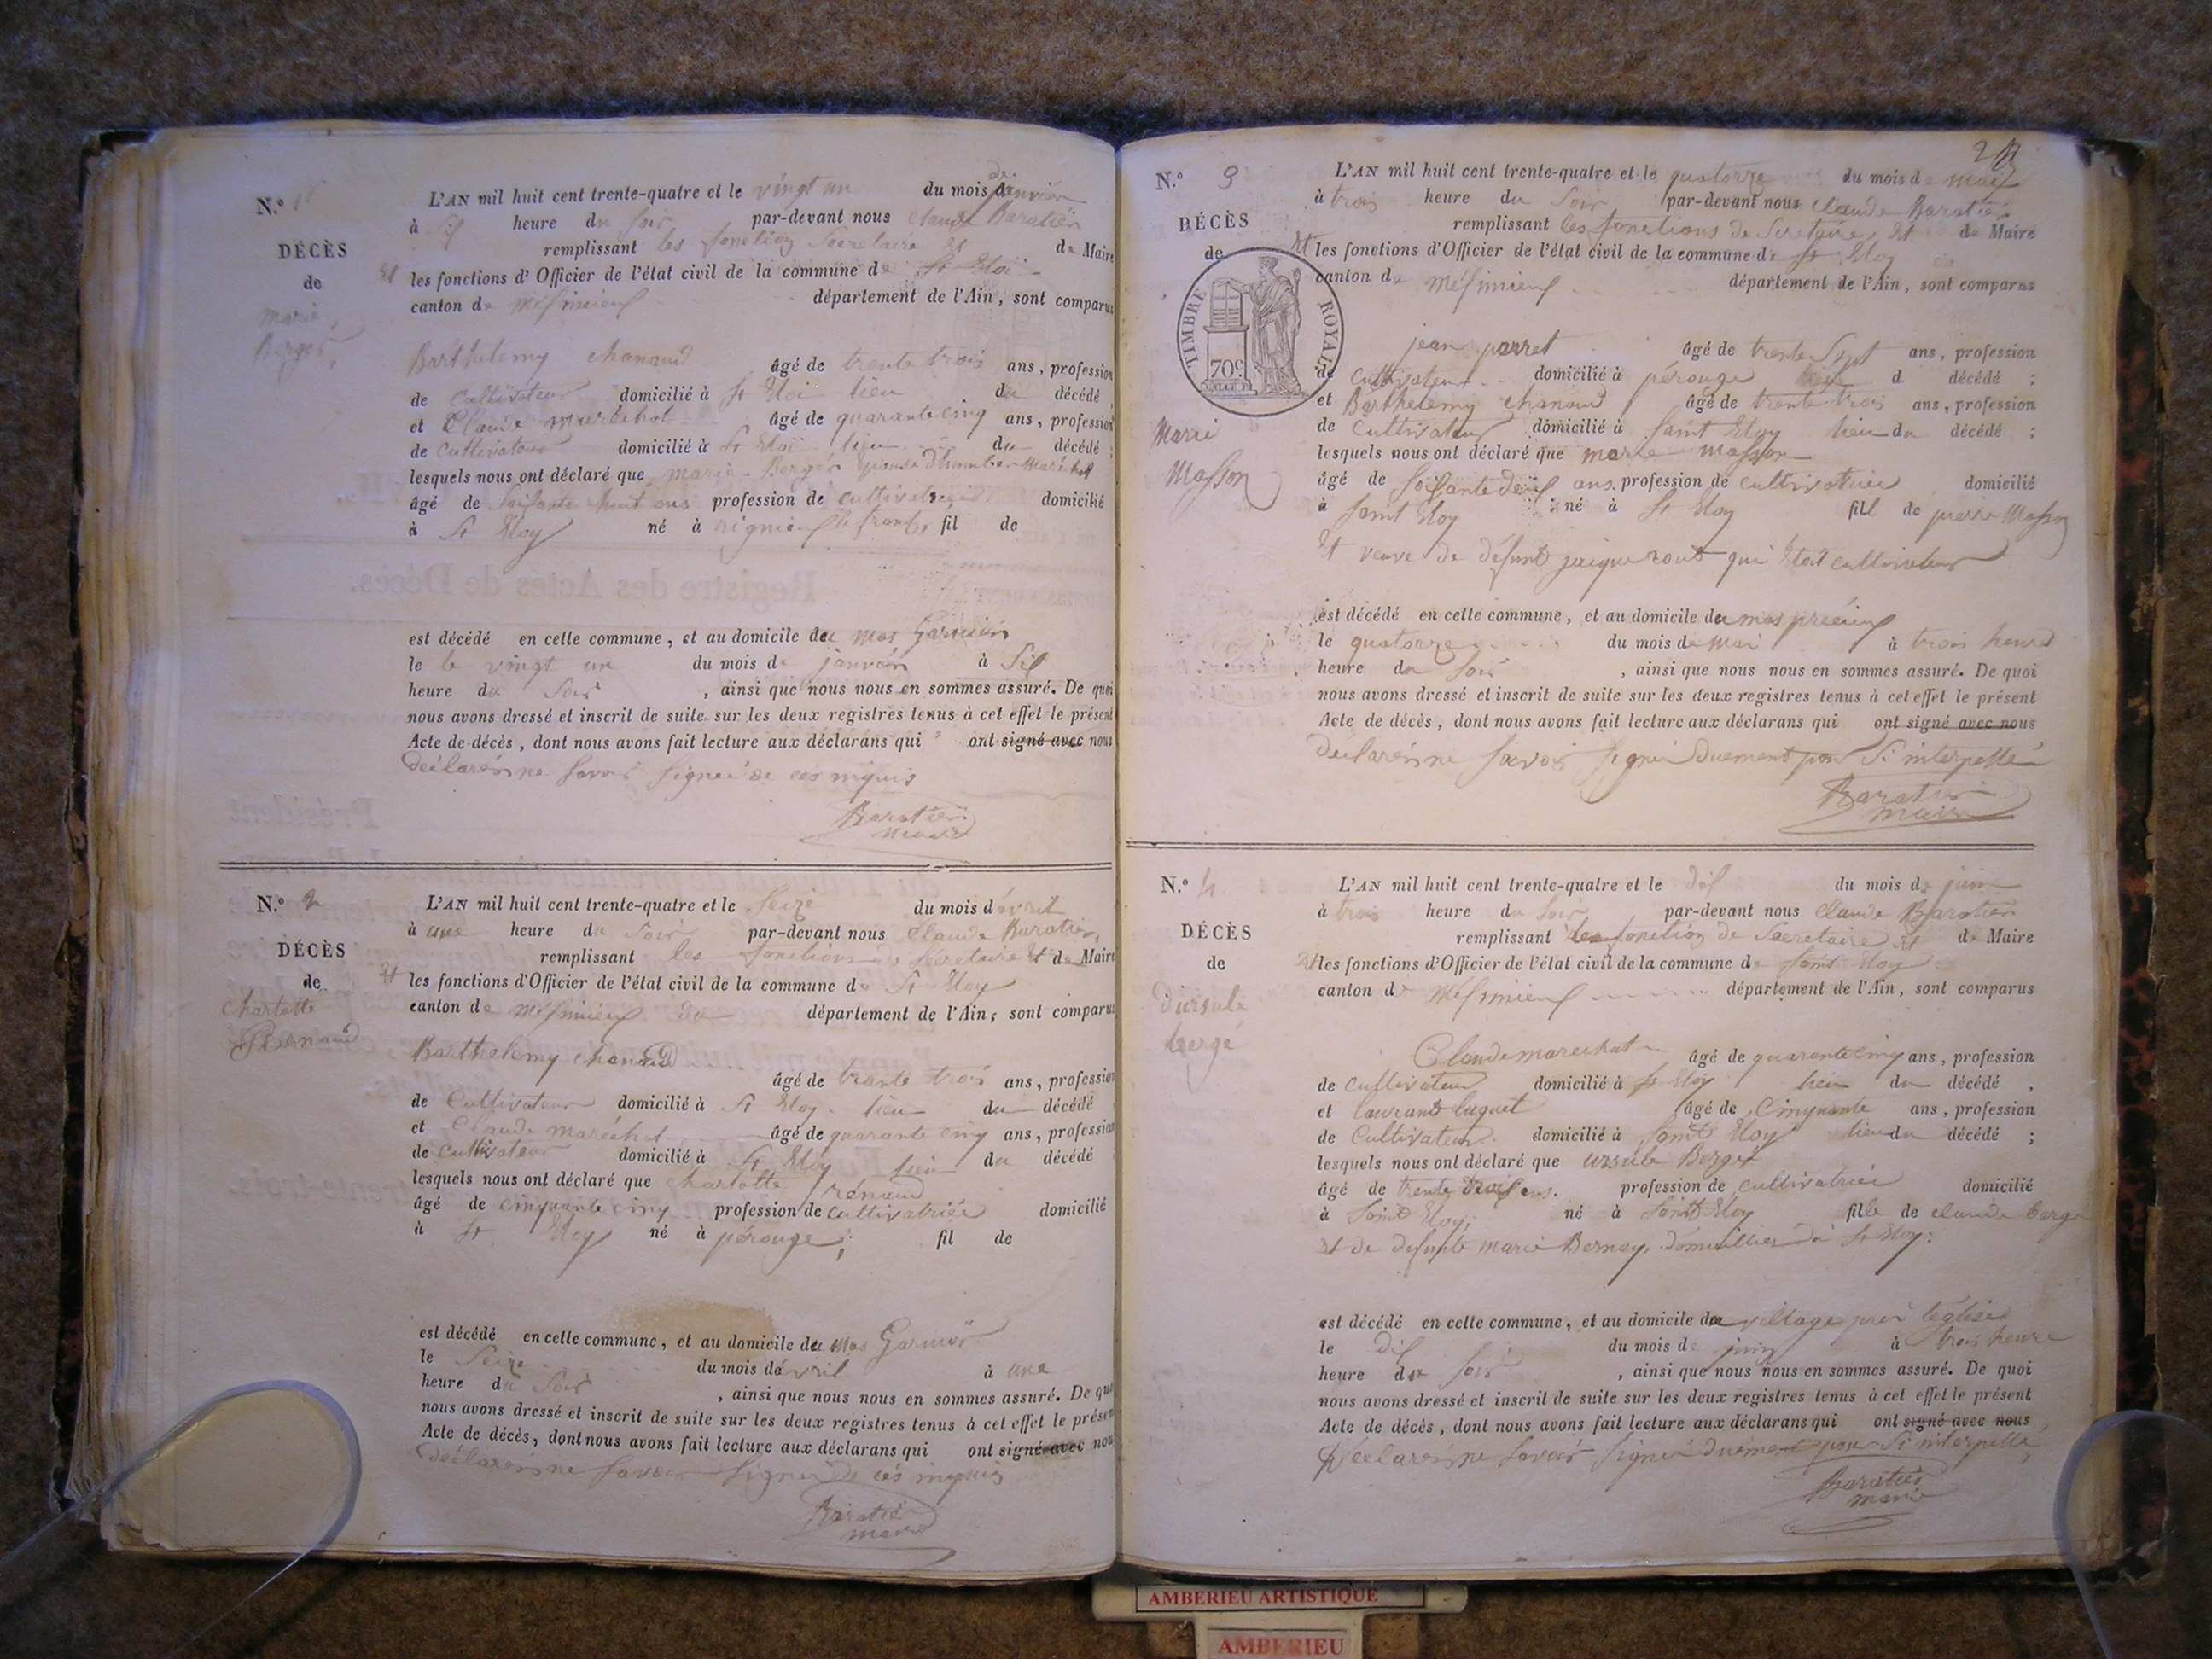 N.º 1er
DÉCÈS
de
marie
Berger
L'AN mil huit cent trente-quatre et le vingt un du mois de janvier
à six heure du soir par-devant nous claude Baratier
remplissant les fonction Secretaire et de Maire
et les fonctions d'Officier de l'état civil de la commune de St Eloi
canton de Mésimieux département de l'Ain, sont comparus
Barthelemy chanaud âgé de trente trois ans, profession
de Cultivateur domicilié à St Eloi lieu du décédé
et Claude maréchal âgé de quarante cinq ans, profession
de Cultivateur domicilié à St Eloi lieu du décédé ;
lesquels nous ont déclaré que marie Berger épouse d'humber Maréchal
âgé de soixante huit ans profession de cultivatrice domicilié
à St Eloy né à rignieux le franc, fil de
est décédé en celle commune, et au domicile du mas Garnier
le le vingt un du mois de janvier à Six
heure du Soir , ainsi que nous nous en sommes assuré. De quoi
nous avons dressé et inscrit de suite sur les deux registres tenus à cet effet le présent
Acte de décès, dont nous avons fait lecture aux déclarans qui ont signé avec nous
déclarer ne savoir signer de ce requis
Baratier
maire
N.º 2
DÉCÈS
de
Charlotte
Renaud
L'AN mil huit cent trente-quatre et le Seize du mois d'avril
à une heure du Soir par-devant nous Claude Baratier,
remplissant les fonctions de secretaire et de Maire
et les fonctions d'Officier de l'état civil de la commune de St Eloy
canton de mésimieux du département de l'Ain, sont comparus
Barthelemy chanaud
âgé de trante trois ans, profession
de Cultivateur domicilié à St Eloy lieu du décédé
et Claude maréchal âgé de quarante cinq ans, profession
de cultivateur domicilié à St Eloy lieu du décédé
lesquels nous ont déclaré que charlotte rénaud
âgé de cinquante cinq profession de cultivatrice domicilié
à St Eloy né à pérouge ; fil de
est décédé en celle commune, et au domicile du mas Garnier
le Seize du mois d'avril à une
heure du Soir , ainsi que nous nous en sommes assuré. De quoi
nous avons dressé et inscrit de suite sur les deux registres tenus à cet effet le présent
Acte de décès, dont nous avons fait lecture aux déclarans qui ont signé avec nous
déclarer ne savoir signer de ce requis
Baratier
maire
N.º 3
DÉCÈS
de
Marie
Masson
TIMBRE ROYAL
70c
L'AN mil huit cent trente-quatre et le quatorze du mois de mai
à trois heure du Soir par-devant nous Claude Baratier
remplissant les fonctions de Secretaire, et de Maire
et les fonctions d'Officier de l'état civil de la commune de St Eloy
canton de Mésimieux département de l'Ain, sont comparus
jean parret âgé de trente Sept ans, profession
de cultivateur domicilié à pérouge lieu d décédé ;
et Barthelemy chanaud âgé de trente trois ans, profession
de Cultivateur domicilié à Saint Eloy lieu du décédé ;
lesquels nous ont déclaré que marie masson
âgé de Soixante deux ans profession de cultivatrice domicilié
à Saint Eloy né à St Eloy fill de pierre Masson
et veuve de défunt jaique qui était cultivateur
est décédé en celle commune, et au domicile du mas
le quatorze du mois de mai à trois heure
heure du Soir , ainsi que nous nous en sommes assuré. De quoi
nous avons dressé et inscrit de suite sur les deux registres tenus à cet effet le présent
Acte de décès, dont nous avons fait lecture aux déclarans qui ont signé avec nous
déclarer ne savoir signer duement pour Si interpellé
Baratier
maire
N.º 4
DÉCÈS
de
d'ursule
bergé
L'AN mil huit cent trente-quatre et le dix du mois de juin
à trois heure du Soir par-devant nous Claude Baratier
remplissant les fonction de Secretaire et de Maire
et les fonctions d'Officier de l'état civil de la commune de Saint Eloy
canton de Mésimieux département de l'Ain, sont comparus
Claude marechal âgé de quarante cinq ans, profession
de cultivateur domicilié à St Eloy lieu du décédé ,
et laurand luquet âgé de Cinquante ans, profession
de Cultivateur domicilié à Saint Eloy lieu du décédé ;
lesquels nous ont déclaré que ursule Berger
âgé de trente ans. profession de cultivatrice domicilié
à Saint Eloy né à Saint Eloy fille de claude berge
et de defunte marie Bernay domicillié à St Eloy :
est décédé en celle commune, et au domicile du village près l'église
le dix du mois de juin à trois heure
heure du soir , ainsi que nous nous en sommes assuré. De quoi
nous avons dressé et inscrit de suite sur les deux registres tenus à cet effet le présent
Acte de décès, dont nous avons fait lecture aux déclarans qui ont signé avec nous
déclarer ne savoir signer duement pour Si interpellé
Baratier
maire
AMBERIEU ARTISTIQUE
AMBERIEU